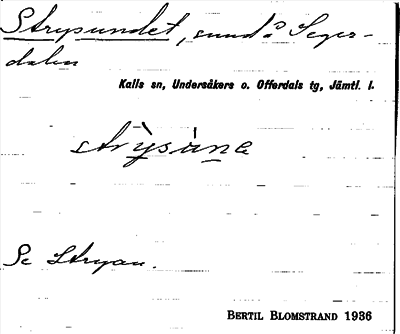 Strysundet, sund i Seger-
dalen
Kalls sn, Undersåkers o. Offerdals tg, Jämtl. l.
Se Stryan.
BERTIL BLOMSTRAND 1936